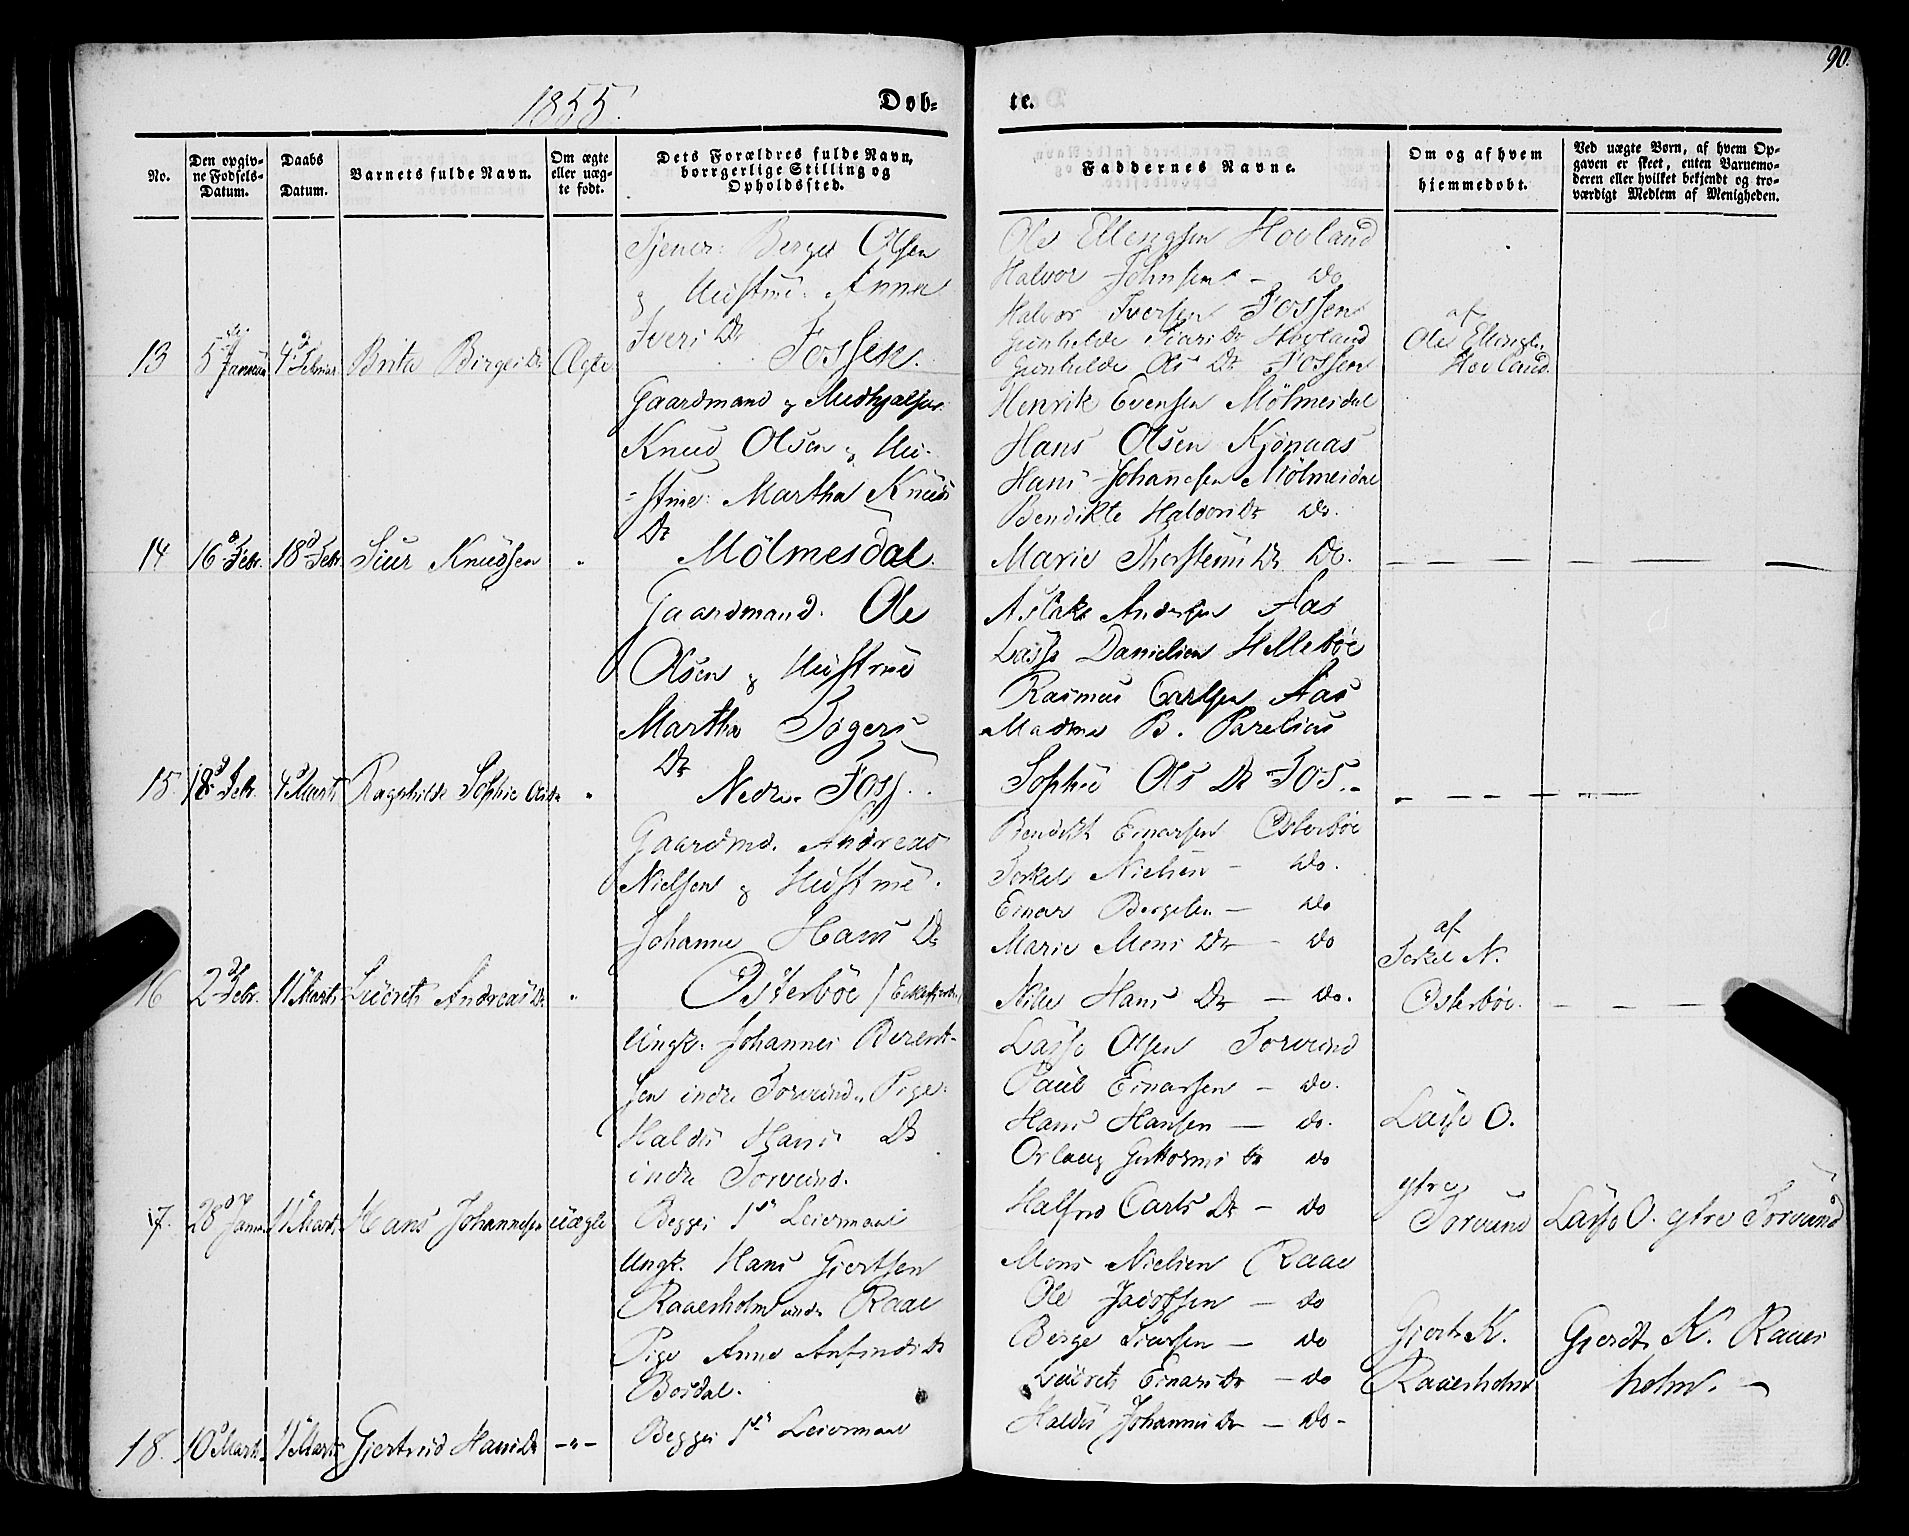 90.
1855.
Døb-
te.
No.
Den opgiv-
ne Fødsels-
Datum.
Daabs
Datum.
Barnets fulde Navn.
Om ægte
eller uæg-
te født.
Dets Forældres fulde Navn,
borgerlige Stilling og
Opholdssted.
Faddernes Navne.
Om og af hvem
hjemmedøbt.
Ved uægte Børn, af hvem Op-
gaven er skeet, enten Barnemo-
deren eller hvilket bekjendt og tro-
værdigt Medlem af Menigheden.
13
5 Januar
4 Februar
Brita Birgei Dr
Ægte
Tjener: Berge Olsen
& Hustrue: Anna
Iveri Dr
Fossen.
Ole Ellingsen Hovland
Halvor Johnsen - Do
Halvor Iversen Fossen
Gunhilde Siuri Dr Hovland
Gunhilde Ols Dr Fossen
af
Ole Ellingsen
Hovland
14
16 Febr.
18 Febr.
Siur Knudsen
"
Gaardmand & Medhjælper
Knud Olsen & Hu-
-strue: Martha Knuds
Dr
Mölmesdal.
Henrik Evensen Mölmesdal
Hans Olsen Kjönaas
Hans Johannesen Mölmesdal
Bendikte Halvori Dr Do.
Marie Thorsteini Dr Do.
15
18 Febr.
4 Marts
Ragnhilde Sophie Ols Dr
"
Gaardmand. Ole
Olsen & Hustrue
Martha Tögers
Dr
Nedre Foss.
Aslak Andersen Aas
Lasse Danielsen Hellebøe
Rasmus Carlsen Aas
Madme B. Parelius
Sophie Ols Dr Fos.
16
2 Febr.
11 Marts
Liuvret Andreas Dr
"
Gaardmd. Andreas
Nielsen & Hustrue
Johanne Hans Dr
Østerbøe
Bendikt Einarsen Østerbøe
Torkel Nielsen - Do.
Einar Bergesen - Do
Marie Mons Dr - Do
Nille Hans Dr - Do.
af
Torkel N.
Østerbøe.
17.
28 Januar
11 Marts
Hans Johannesen
uægte
Ungk. Johannes Berent-
sen indre Torvund & Pige:
Haldis Hans Dr
indre Torvund.
Begges 1st Leiermaal
Lasse Olsen Torvund
Paul Einarsen - Do.
Hans Hansen - do.
Orlaug Guttormsdr do
Halfrid Carls Dr - do
Lasse O.
ytre
Torvund
Lasse O. ytre Torvund
18.
10 Marts
11 Marts
Gjertrud Hans Dr
-"-
Ungk. Hans Gjertsen
Raaesholm under Raae
Pige Anne Anfinds Dr
Bosdal.
Begges 1st Leiermaal
Mons Nielsen Raae
Ole Jacobsen - do
Berge Siursen - Do
Liuvret Einars Dr - do
Haldis Johannes Dr - Do-
Gjert K.
Raaesholm
Gjerdt K. Raaes
holm. -